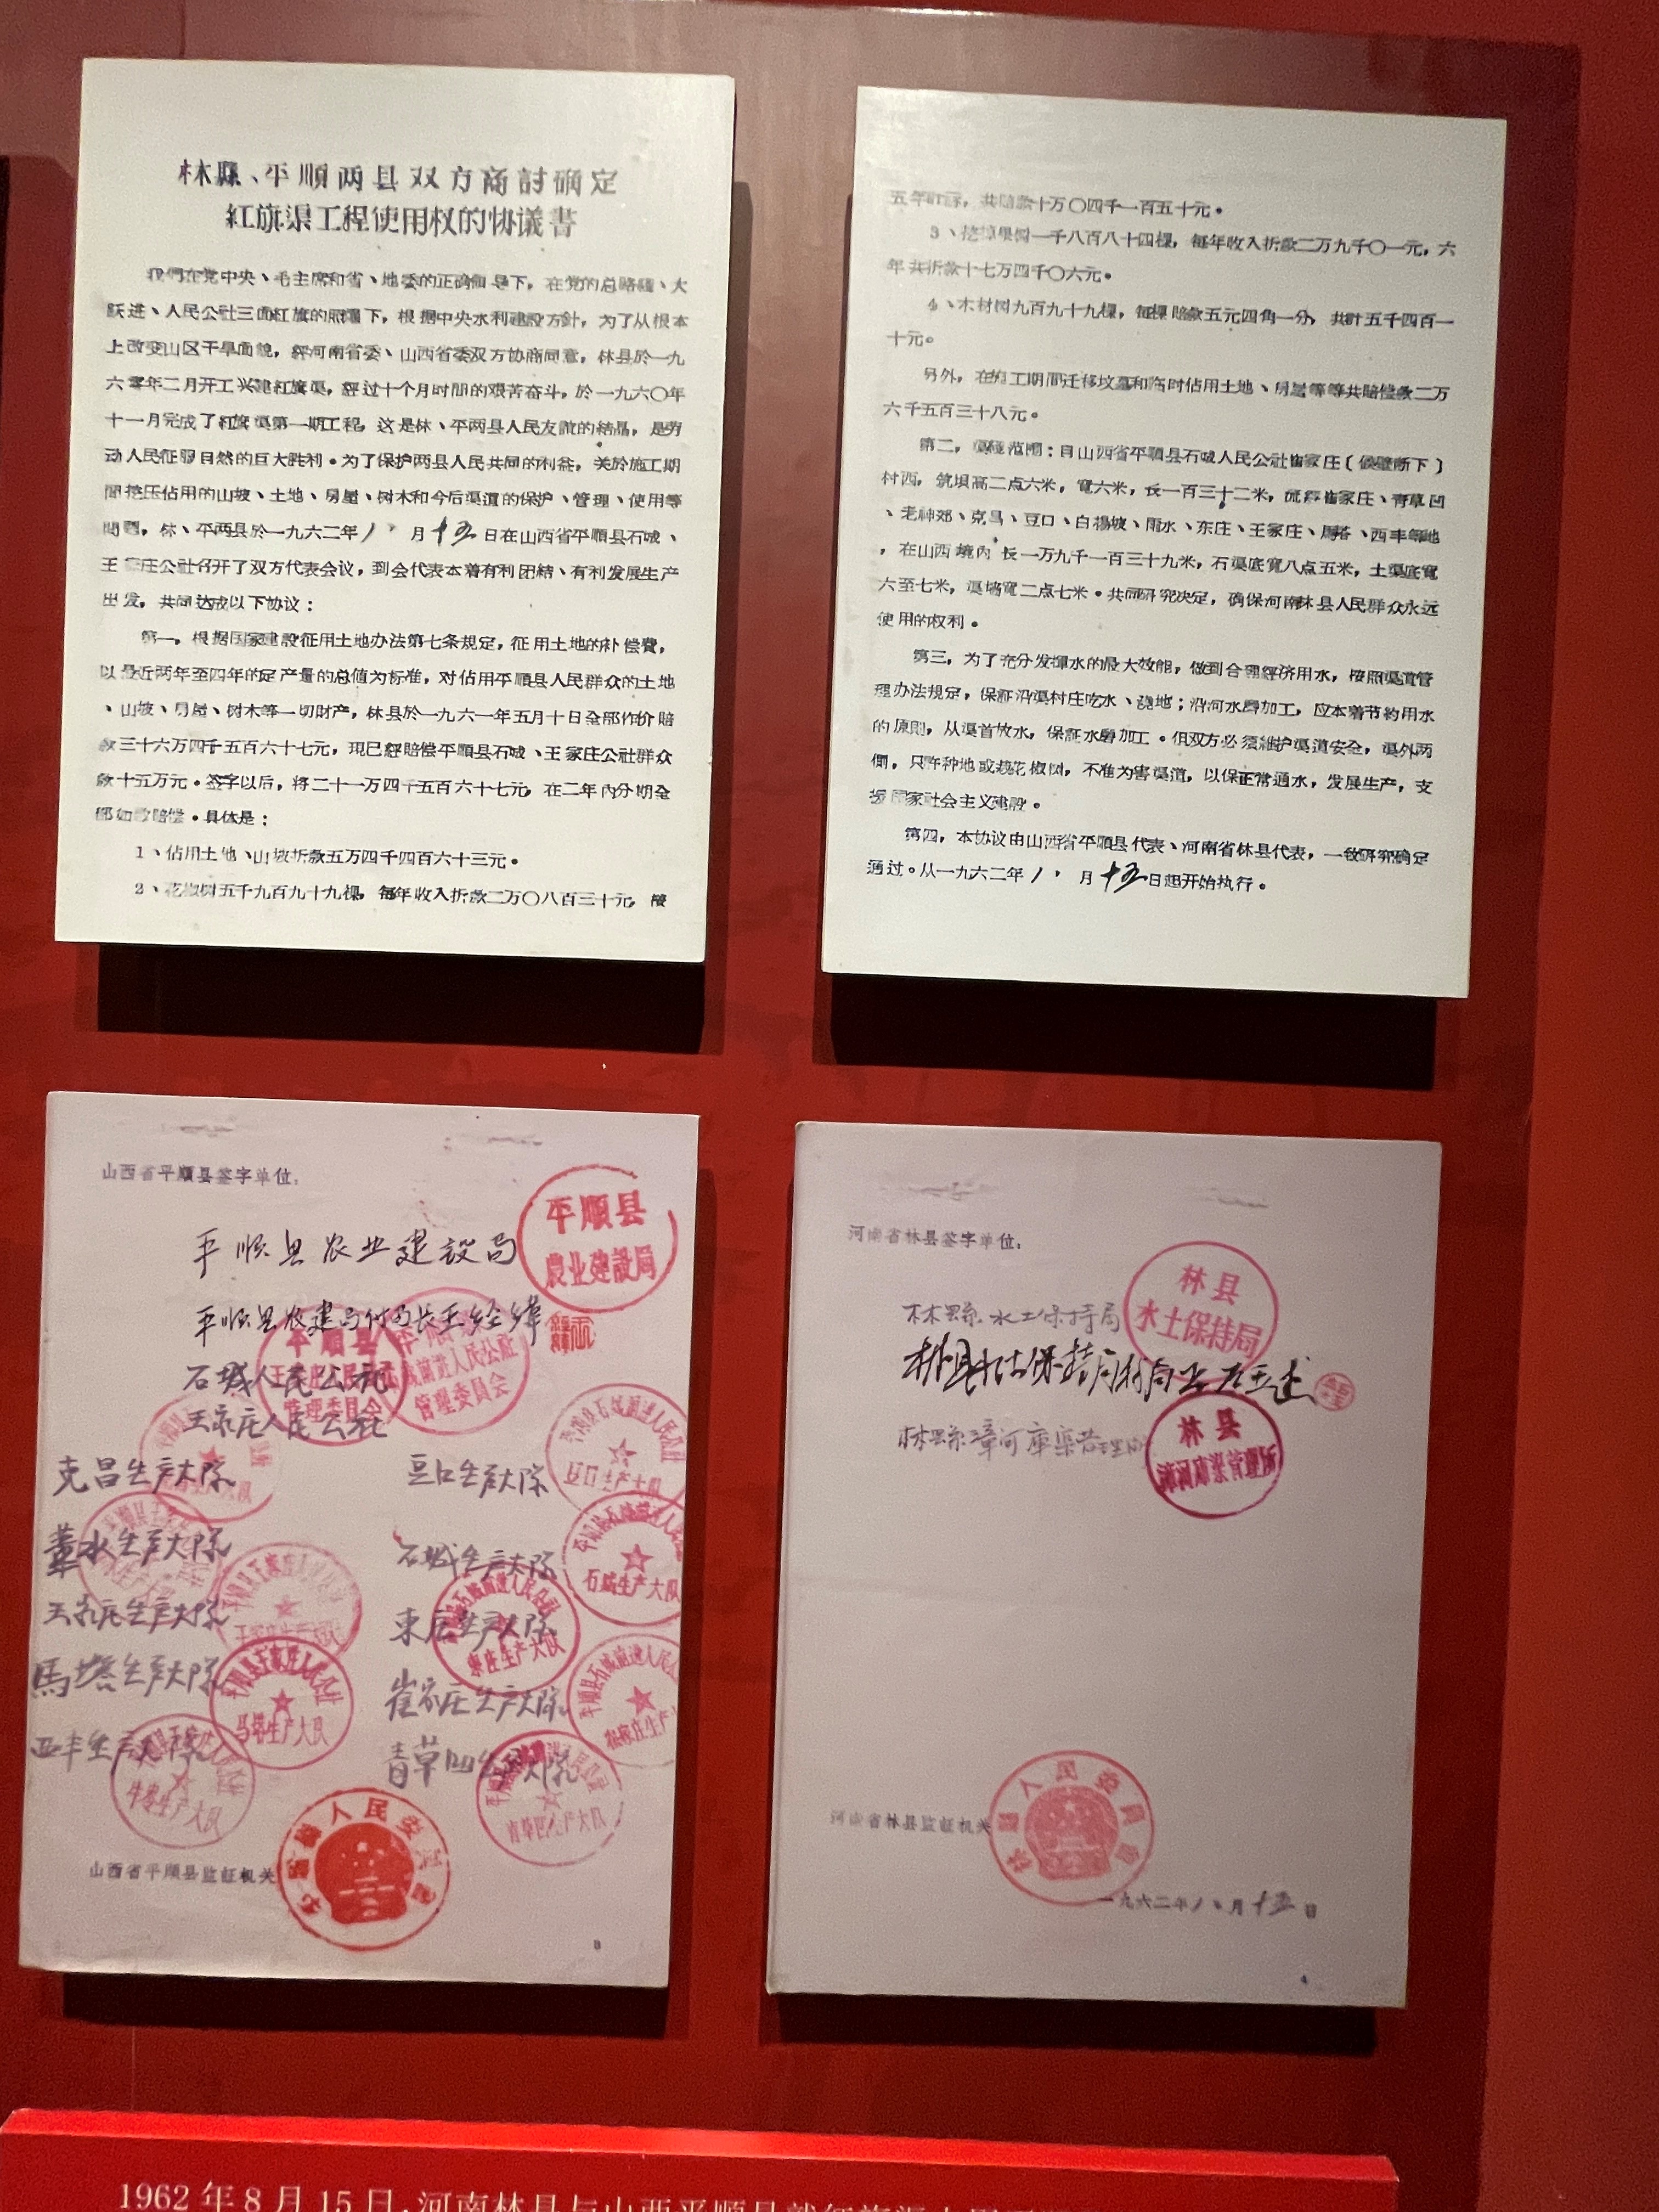 林縣、平順两县双方商討确定
紅旗渠工程使用权的协議書
我們在党中央、毛主席和省、地委的正确領导下，在党的总路綫、大
跃进、人民公社三面紅旗的照耀下，根据中央水利建設方針，为了从根本
上改变山区干旱面貌，經河南省委、山西省委双方协商同意，林县於一九
六零年二月开工兴建紅旗渠，經过十个月时間的艰苦奋斗，於一九六〇年
十一月完成了紅旗渠第一期工程，这是林、平两县人民友誼的結晶，是劳
动人民征服自然的巨大胜利。为了保护两县人民共同的利益，关於施工期
間挖压佔用的山坡、土地、房屋、树木和今后渠道的保护、管理、使用等
問題，林、平两县於一九六二年八月十五日在山西省平順县石城、
王家庄公社召开了双方代表会议，到会代表本着有利团結、有利发展生产
出发，共同达成以下协議：
第一，根据国家建設征用土地办法第七条规定，征用土地的补偿費，
以最近两年至四年的定产量的总值为标准，对佔用平順县人民群众的土地
、山坡、房屋、树木等一切財产，林县於一九六一年五月十日全部作价賠
款三十六万四千五百六十七元，現已經賠偿平順县石城、王家庄公社群众
款十五万元。签字以后，将二十一万四千五百六十七元，在二年內分期全
部如数賠偿。具体是：
1、佔用土地、山坡折款五万四千四百六十三元。
2、花椒树五千九百九十九棵，每年收入折款二万〇八百三十元，按
五年計算，共賠款十万〇四千一百五十元。
3、挖掉果树一千八百八十四棵，每年收入折款二万九千〇一元，六
年共折款十七万四千〇六元。
4、木材树九百九十九棵，每棵賠款五元四角一分，共計五千四百一
十元。
另外，在施工期間迁移坟墓和临时佔用土地、房屋等等共賠偿款二万
六千五百三十八元。
第二，渠綫范围：自山西省平順县石城人民公社崔家庄（侯壁断下）
村西，筑坝高二点六米，寬六米，长一百三十二米，流經崔家庄、青草凹
、老神郊、克昌、豆口、白楊坡、雨水、东庄、王家庄、馬塔、西丰等地
，在山西境內长一万九千一百三十九米，石渠底寬八点五米，土渠底寬
六至七米，渠墙寬二点七米。共同研究决定，确保河南林县人民群众永远
使用的权利。
第三，为了充分发揮水的最大效能，做到合理經济用水，按照渠道管
理办法規定，保証沿渠村庄吃水、浇地；沿河水磨加工，应本着节約用水
的原則，从渠首放水，保証水磨加工。但双方必須維护渠道安全，渠外两
側，只許种地或栽花椒树，不准为害渠道，以保正常通水，发展生产，支
援国家社会主义建設。
第四，本协议由山西省平順县代表、河南省林县代表，一致研究确定
通过。从一九六二年八月十五日起开始执行。
山西省平順县签字单位：
平順县农业建設局
平順县
農业建設局
平順县农建局付局长王经緯
石城人民公社
王家庄人民公社
平順县
管理委員会
管理委員会
克昌生产大队
豆口生产大队
豆口生产大队
葦水生产大队
石城生产大队
石城生产大队
王家庄生产大队
东庄生产大队
東庄生产大队
馬塔生产大队
平順县王家庄人民公社
马塔生产大队
崔家庄生产大队
崔家庄生产
西丰生产大队
青草凹生产大队
青草凹生产大队
山西省平順县监証机关
3
河南省林县签字单位：
林縣水土保持局
林县
水土保持局
林县水土保持局付局长
林縣漳河庫渠管理所
林县
漳河庫渠管理所
河南省林县监証机关
林縣人民委員会
一九六二年八月十五日
4
1962年8月15日，河南林县与山西平顺县就红旗渠